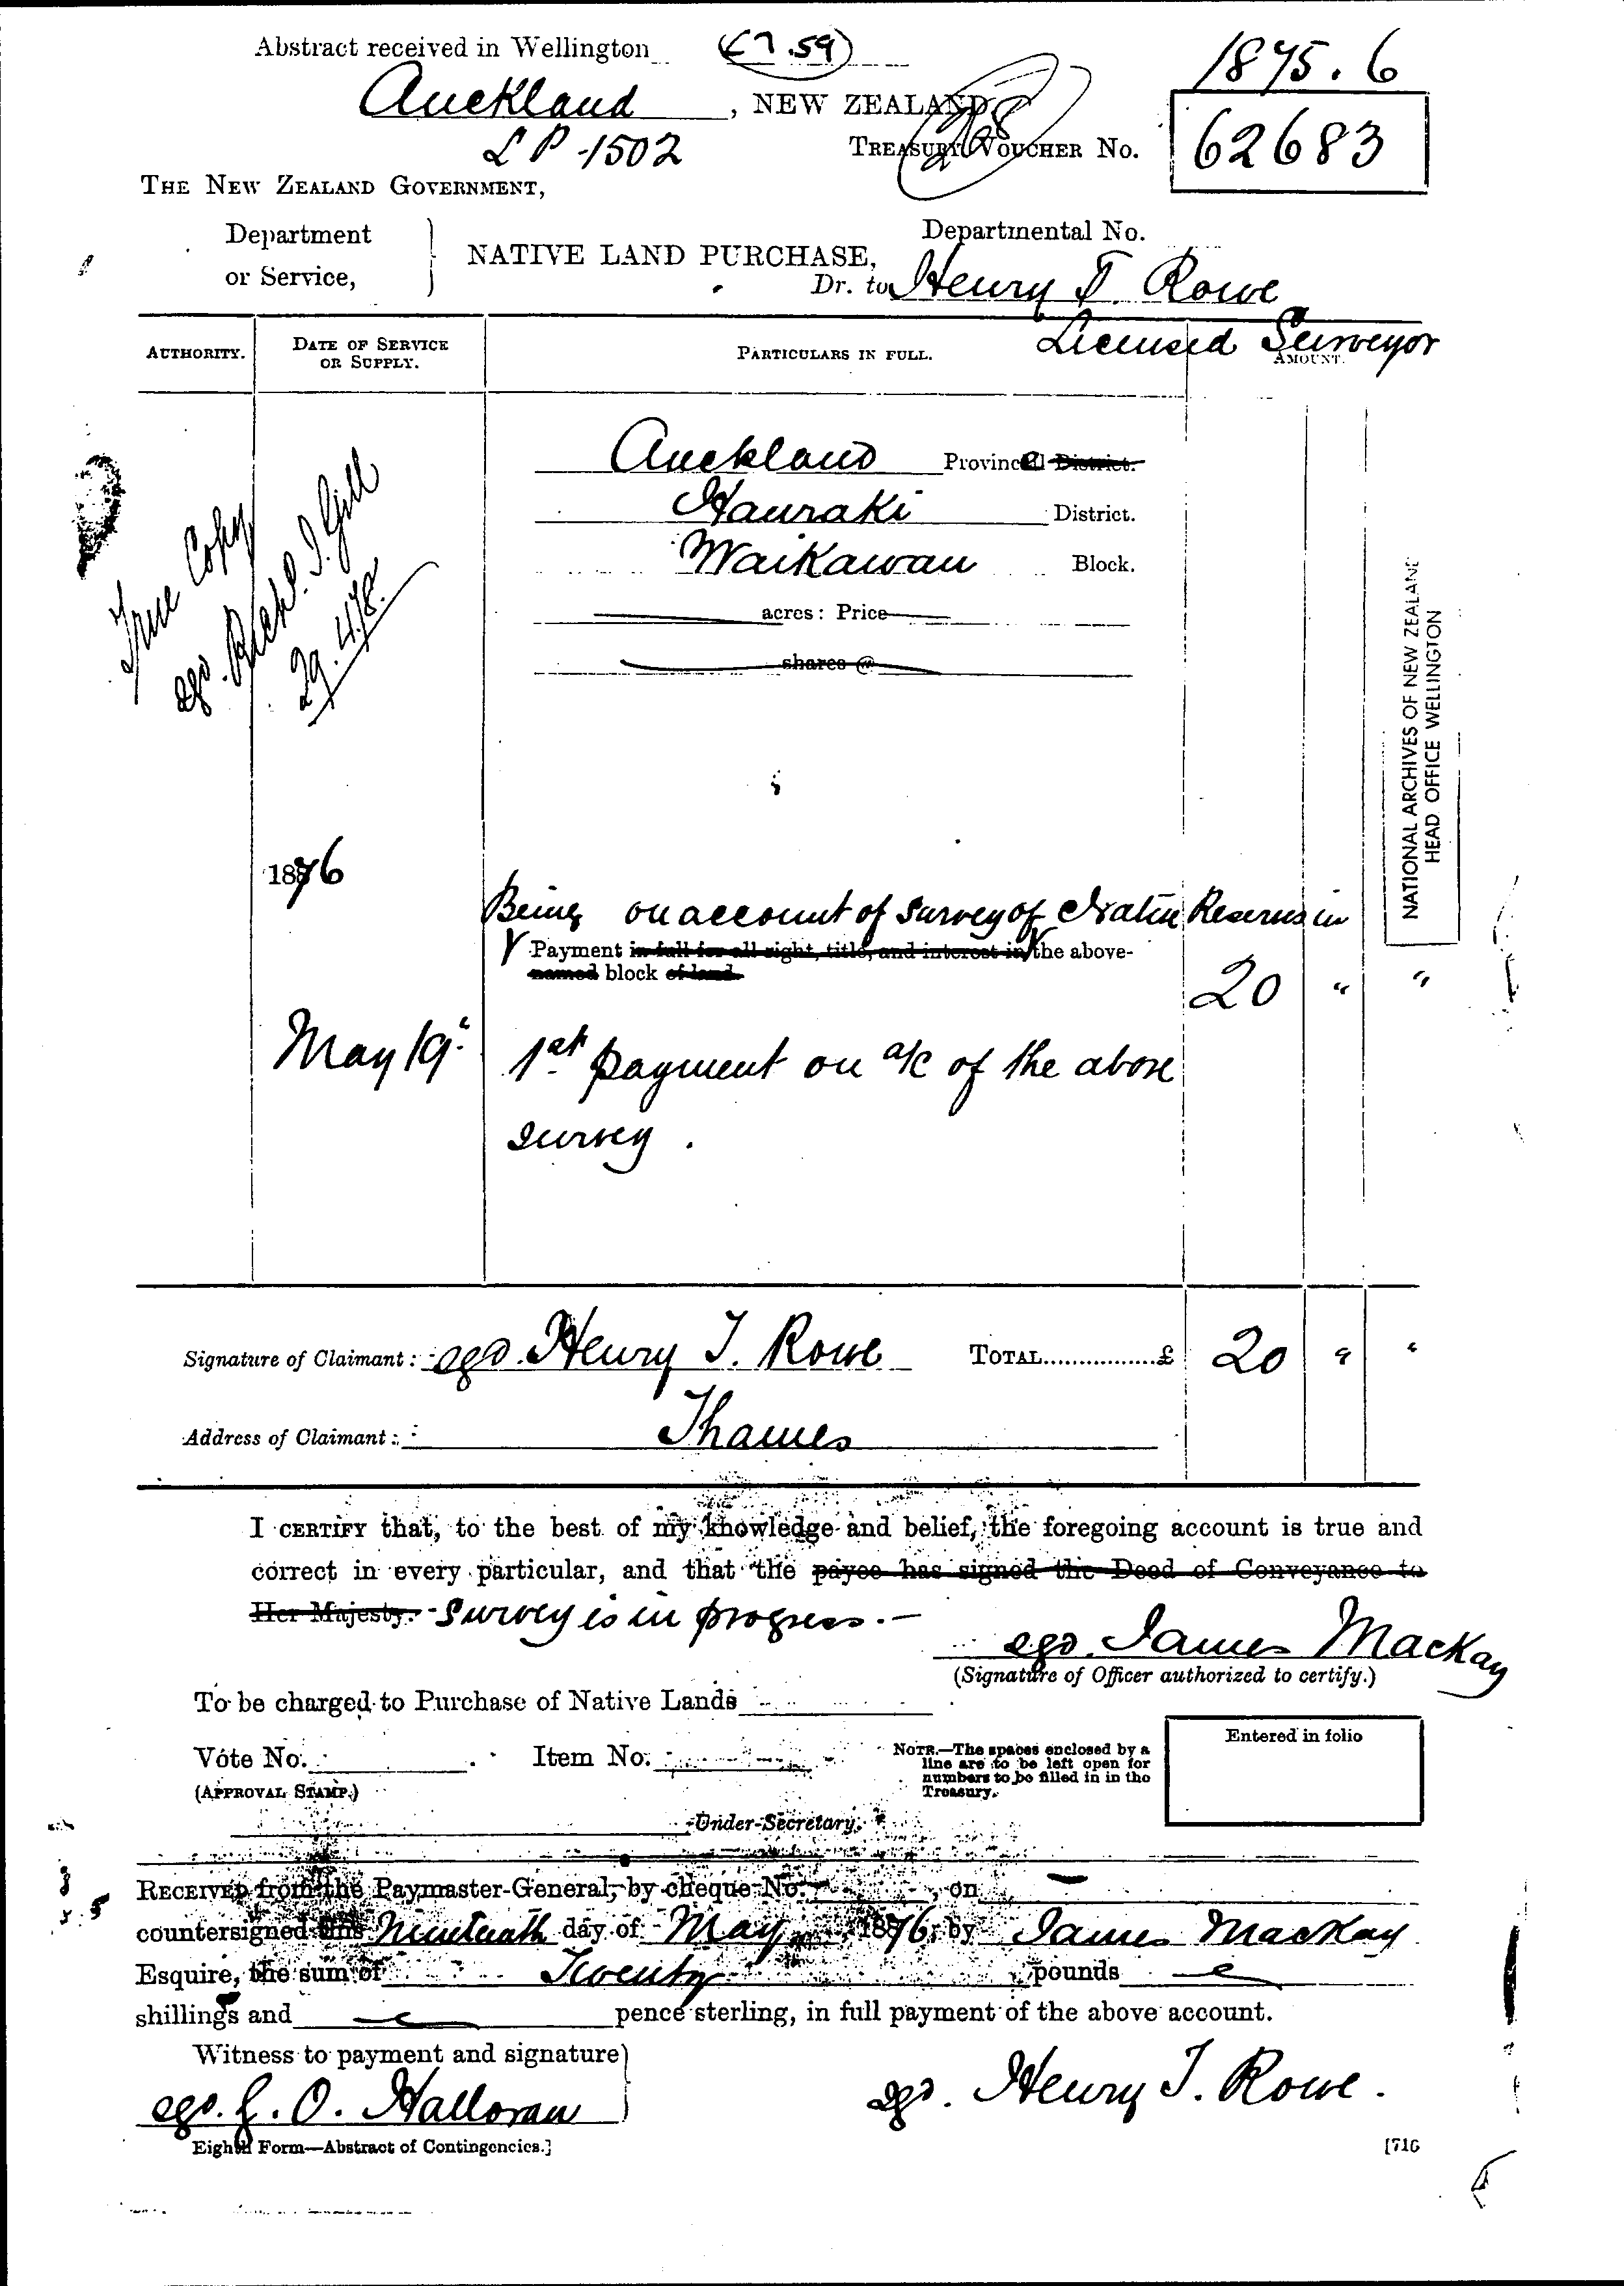 Abstract received in Wellington (£7.59)
1875.6
Auckland, NEW ZEALAND
LP-1502
TREASURY VOUCHER No. 62683
THE NEW ZEALAND GOVERNMENT,
Department
or Service,
NATIVE LAND PURCHASE,
Departmental No.
Dr. to Henry T. Rowe
Licensed Surveyor
AUTHORITY. DATE OF SERVICE OR SUPPLY. PARTICULARS IN FULL. AMOUNT.
True Copy
sgd. Richd. J. Gill
29.4.78.
Auckland Province District.
Hauraki District.
Waikawau Block.
acres: Price
shares @
1876
Being on account of survey of Native Reserves in
Payment in full for all right, title, and interest in the above-
named block of land.
20 " "
May 19. 1st payment on a/c of the above
survey.
NATIONAL ARCHIVES OF NEW ZEALAND
HEAD OFFICE WELLINGTON
Signature of Claimant: sgd. Henry T. Rowe TOTAL................£ 20 " "
Address of Claimant: Thames
I CERTIFY that, to the best of my knowledge and belief, the foregoing account is true and
correct in every particular, and that the payee has signed the Deed of Conveyance to
Her Majesty. Survey is in progress.—
sgd. James Mackay
(Signature of Officer authorized to certify.)
To be charged to Purchase of Native Lands
Vote No. Item No.
(APPROVAL STAMP.)
NOTE.—The spaces enclosed by a
line are to be left open for
numbers to be filled in in the
Treasury.
Entered in folio
Under-Secretary.
RECEIVED from the Paymaster-General, by cheque No. , on
countersigned this Nineteenth day of May 1876, by James Mackay
Esquire, the sum of Twenty pounds
shillings and pence sterling, in full payment of the above account.
Witness to payment and signature
sgd. J. O. Halloran
sgd. Henry T. Rowe.
Eighth Form—Abstract of Contingencies.]
[716